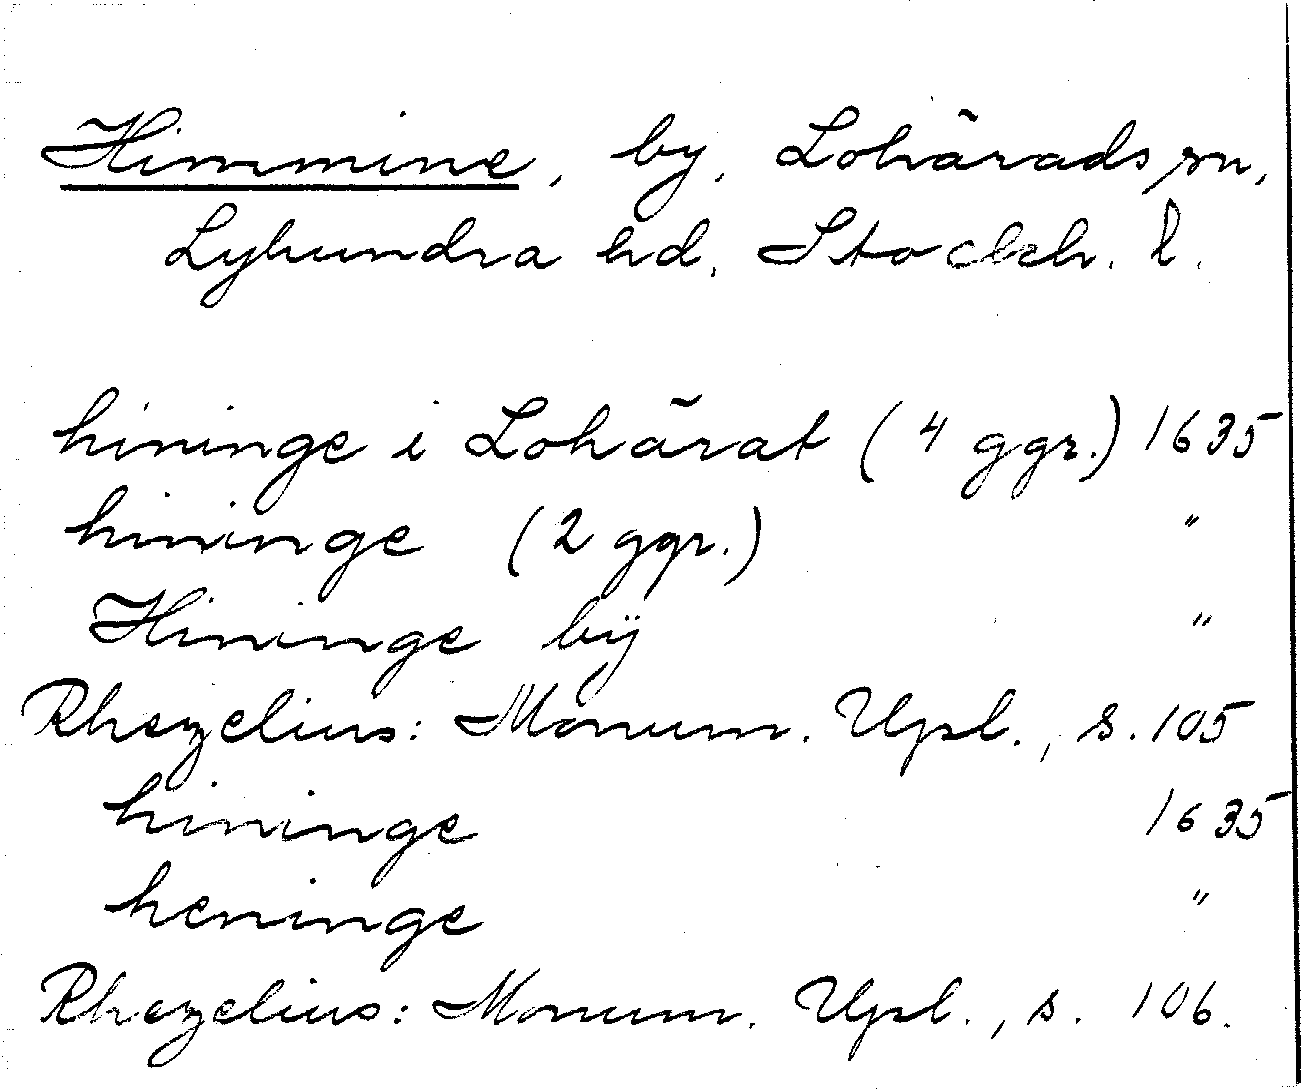 Himmine, by, Lohärads sn,
Lyhundra hd, Stockh. l.
hininge i Lohärat (4 ggr.) 1635
hininge (2 ggr.) "
Hininge bÿ "
Rhezelius: Monum. Upl., s. 105
hininge 1635
heninge "
Rhezelius: Monum. Upl., s. 106.